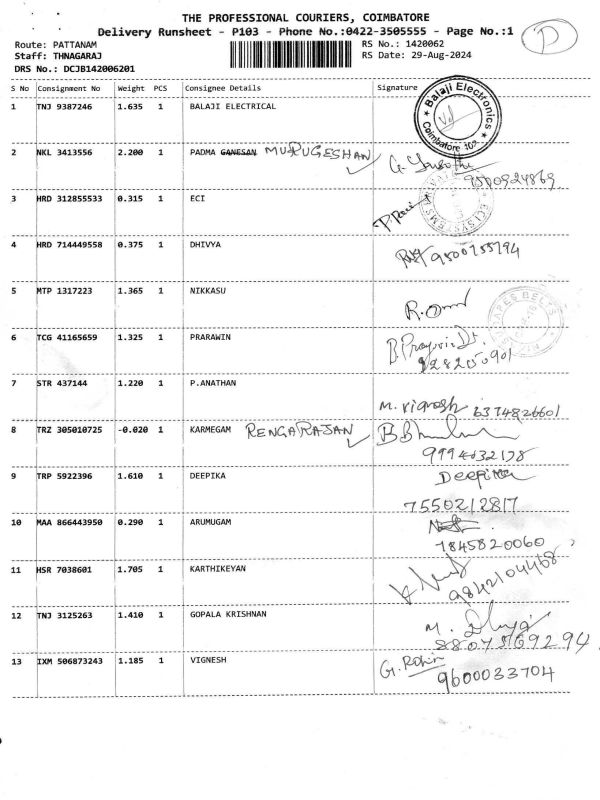 THE PROFESSIONAL COURIERS, COIMBATORE
Delivery Runsheet - P103 - Phone No.:0422-3505555 - Page No.:1
Route: PATTANAM RS No.: 1420062
Staff: THNAGARAJ RS Date: 29-Aug-2024
DRS No.: DCJB142006201
S No Consignment No Weight PCS Consignee Details Signature
1 TNJ 9387246 1.635 1 BALAJI ELECTRICAL
Balaji Electronics Coimbatore
2 NKL 3413556 2.200 1 PADMA GANESAN MURUGESHAN
9500924869
3 HRD 312855533 0.315 1 ECI
ECI SYSTEMS
4 HRD 714449558 0.375 1 DHIVYA
9500755794
5 MTP 1317223 1.365 1 NIKKASU
BELTS
6 TCG 41165659 1.325 1 PRARAWIN
9282050901
7 STR 437144 1.220 1 P.ANATHAN
M. Vignesh 6374826601
8 TRZ 305010725 -0.020 1 KARMEGAM RENGARAJAN
9994032178
9 TRP 5922396 1.610 1 DEEPIKA
Deepika
7550212817
10 MAA 866443950 0.290 1 ARUMUGAM
7845820060
11 HSR 7038601 1.705 1 KARTHIKEYAN
9842104468
12 TNJ 3125263 1.410 1 GOPALA KRISHNAN
8807569294
13 IXM 506873243 1.185 1 VIGNESH
G. Rohin
9600033704